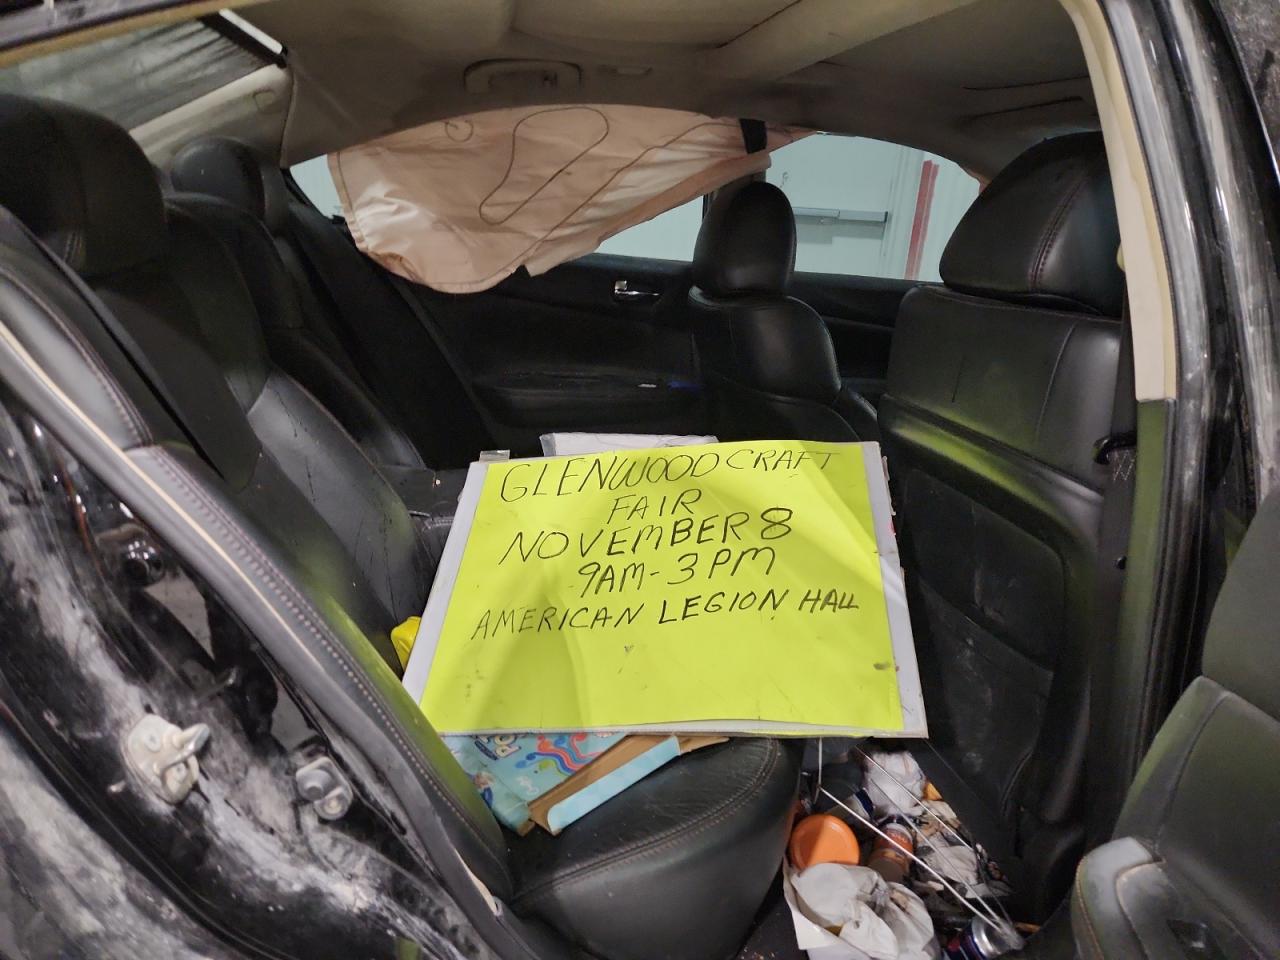 GLENWOOD CRAFT
FAIR
NOVEMBER 8
9AM-3PM
AMERICAN LEGION HALL